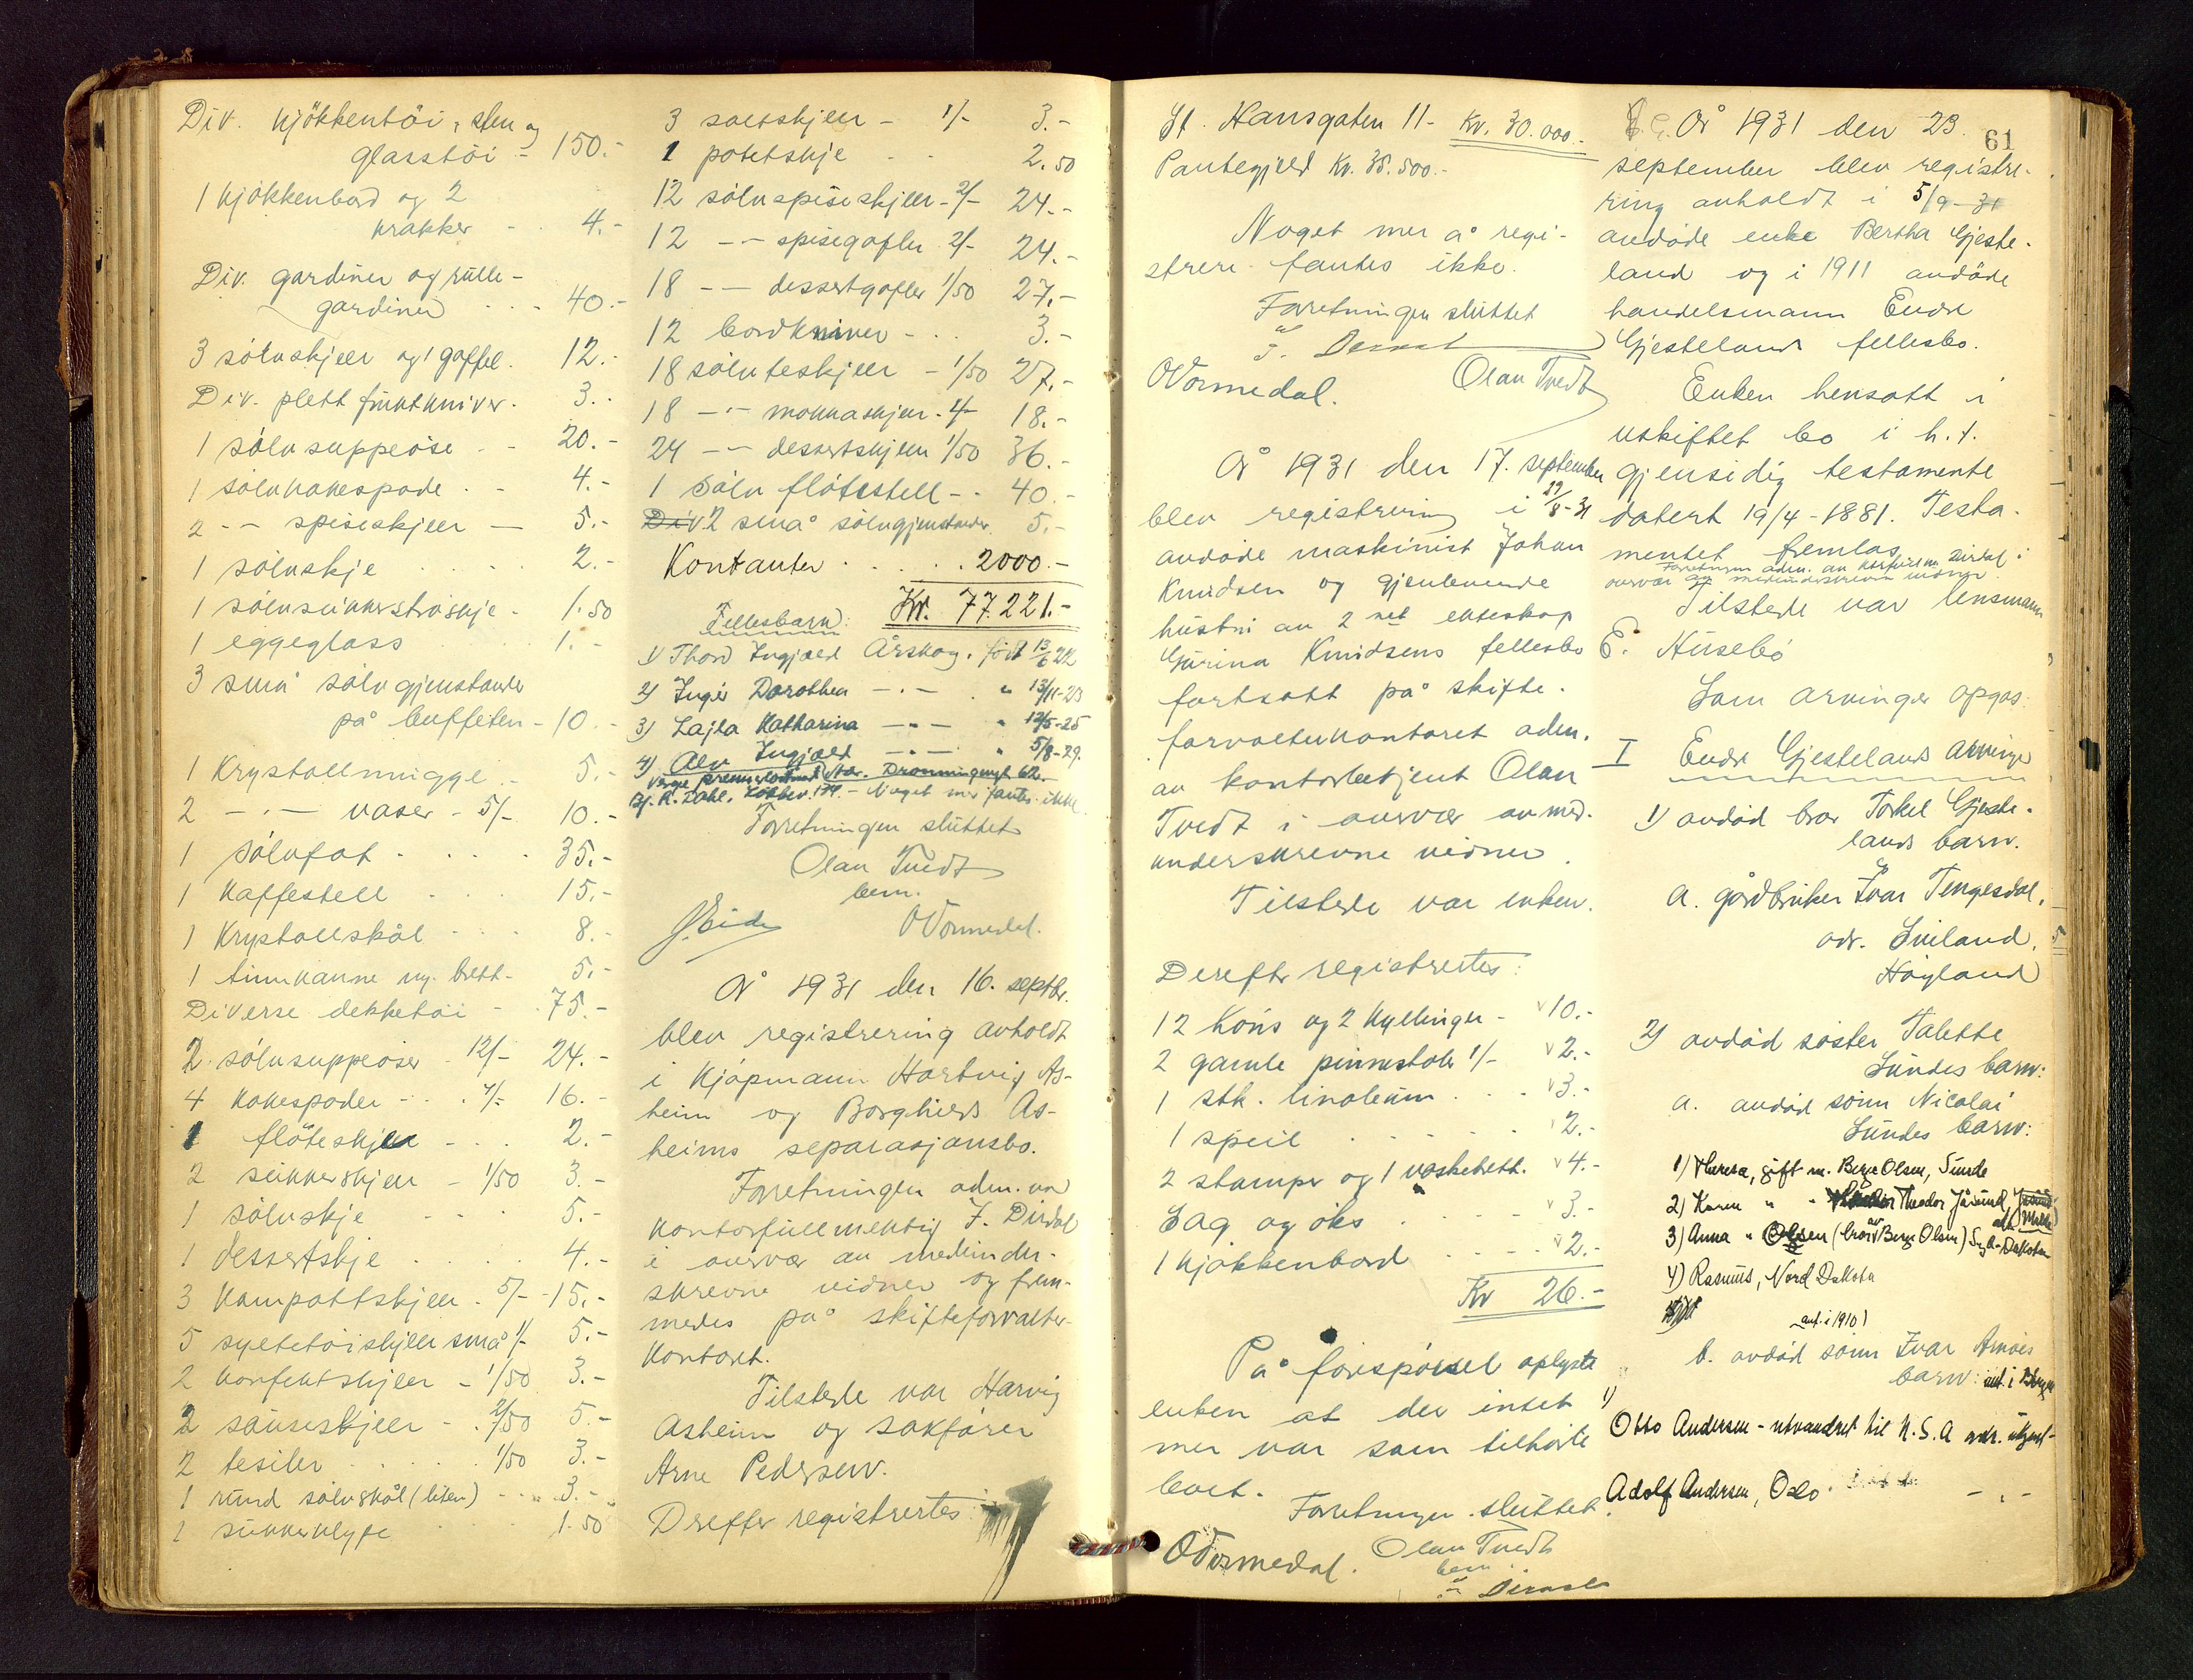 Div. kjökkentöi, sten og
glasstöi - 150.-
1 kjökkenbord og 2
krakker - . 4.-
Div. gardiner og rulle-
gardiner . . . 40.-
3 sölvskjeer og 1 gaffel. 12.-
Div. plett fruktkniver. 3.-
1 sölvsuppeöse . - 20.-
1 sölvkakespade . - 4.-
2 -"- spiseskjeer — 5.-
1 sölvskje . . . . 2.-
1 sölvsukkerströskje - 1.50
1 eggeglass . . . 1.-
3 små sölvgjenstander
på buffeten - 10.-
1 Krystallmugge - 5.-
2 -"- vaser - 5/- 10.-
1 sölvfat . . . . 35.-
1 Kaffestell . . . 15.-
1 Krystallskål . . . 8.-
1 tinnkanne m. brett. 5.-
Diverse dekketöi - . 75.-
2 sölvsuppeöser - 12/- 24.-
4 kakespader - . . 4/- 16.-
1 flöteskjee - . . 2.-
2 sukkerskjeer - 1/50 3.-
1 sölvskje . . . 5.-
1 dessertskje . . . . 4.-
3 kompottskjeer . 5/- 15.-
5 syltetöiskjeer små 1/- 5.-
2 konfektskjeer - 1/50 3.-
2 sauseskjeer - . 2/50 5.-
2 tesiler . . . . 1/50 3.-
1 rund sölvskål (liten) - . . 3.-
1 sukkerklype . . . 1.50
3 saltskjeer - 1/- 3.-
1 potetskje . . 2.50
12 sölvspiseskjeer - 2/- 24.-
12 -"- spisegafler 2/- 24.-
18 -"- dessertgafler 1/50 27.-
12 bordkniver - . . 3.-
18 sölvteskjeer - 1/50 27.-
18 -"- mokkaskjeer - 1/- 18.-
24 -"- dessertskjeer 1/50 36.-
1 Sölv flötestell - . 40.-
Div 2 små sölvgjenstander 5.-
Kontanter . . . . . 2000.-
Kr. 77.221.-
Fellesbarn:
1) Thord Ingjald Årskog. född 13/6 22
2) Inger Dorothea -"- . " 13/11-23
3) Lajla Katharina -"- " 12/5-25
4) Alv Ingjald -"- " 5/8-29.
Noget mer fantes ikke.
Forretningen sluttet
Olav Tvedt
bem.
J. Eide OVormedal.
År 1931 den 16. septbr.
blev registrering avholdt
i Kjöpmann Hartvig As-
heim og Borghild As-
heims separasjonsbo.
Forretningen adm. av
kontorfullmektig J. Dirdal
i overvær av medunder-
skrevne vidner og frem-
medes på skifteforvalter-
kontoret.
Tilstede var Harvig
Asheim og sakförer
Arne Pedersen.
Derefter registrertes:
St. Hansgaten 11 - Kr. 30.000.-
Pantegjeld Kr. 38.500.-
Noget mer å regi-
strere fantes ikke.
Forretningen sluttet
OVormedal. Olav Tvedt
År 1931 den 17. september
blev registrering i 29/8-31
avdöde maskinist Johan
Knudsen og gjenlevende
hustru av 2 net ekteskap
Gurina Knudsens fellesbo
fortsatt på skifte-
forvalterkontoret adm.
av kontorbetjent Olav
Tvedt i overvær av med-
underskrevne vidner.
Tilstede var enken.
Derefter registrertes:
12 höns og 2 kyllinger - 10.-
2 gamle pinnestoler 1/- 2.-
1 stk. linoleum . . . 3.-
1 speil . . . . . . 2.-
2 stamper og 1 vaskebrett. 4.-
Sag og öks . . . . 3.-
1 kjökkenbord . . . . 2.-
Kr 26.-
På forespörsel oplyste
enken at der intet
mer var som tilhörte
boet.
Forretningen sluttet.
OVormedal. Olav Tvedt
bem.
61
År 1931 den 23.
september blev registre-
ring avholdt i 5/9-31
avdöde enke Bertha Gjeste-
land og i 1911 avdöde
handelsmann Endre
Gjestelands fellesbo.
Enken hensatt i
uskiftet bo i h.t.
gjensidig testamente
datert 19/4-1881. Testa-
mentet fremlas.
Forretningen adm. av kontorfullm. Dirdal i
overvær av medunderskrevne vidner.
Tilstede var lensmann
E. Husebö
Som arvinger opgas:
I Endre Gjestelands arvinger
1) avdöd bror Torkel Gjeste-
lands barn.
a. gårdbruker Ivar Tengesdal,
adr. Sviland,
Höyland
2) avdöd söster Talette
Lundes barn:
a. avdöd sönn Nicolai
Lundes barn:
1) Theresa, gift m. Berge Olsen, Sunde
2) Karen " " Theodor Jåsund,
3) Anna " Olsen (bror av Berge Olsen) Syd-Dakota
4) Rasmus, Nord Dakota
ant. i 1910)
b. avdöd sönn Ivar
barn:
1)
Otto Andersen - utvandret til U.S.A adr. ukjent-
Adolf Andersen, Oslo. - " -